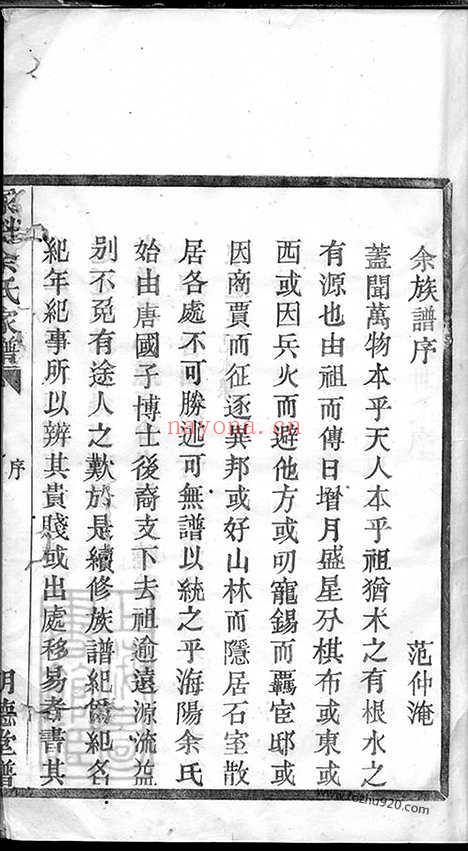 余族譜序
范仲淹
蓋聞萬物本乎天人本乎祖猶木之有根水之
有源也由祖而傳日增月盛星分棋布或東或
西或因兵火而避他方或叨寵錫而羈宦邸或
因商賈而征逐異邦或好山林而隱居石室散
居各處不可勝述可無譜以統之乎海陽余氏
始由唐國子博士後裔支下去祖逾遠源流益
別不免有途人之歎於是續修族譜紀爵紀名
紀年紀事所以辨其貴賤或出處移易者書其
余氏家譜
序
明德堂譜
nayona.cn
www.tozhu920.com